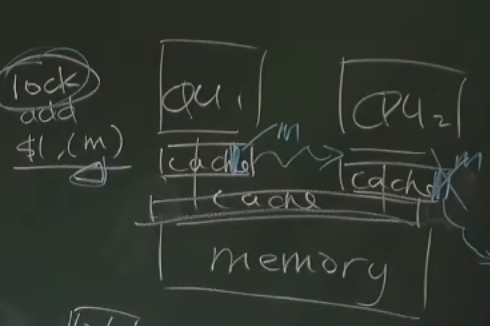 lock
add
$1, (m)
CPU1
CPU2
m
m
cache
cache
cache
memory